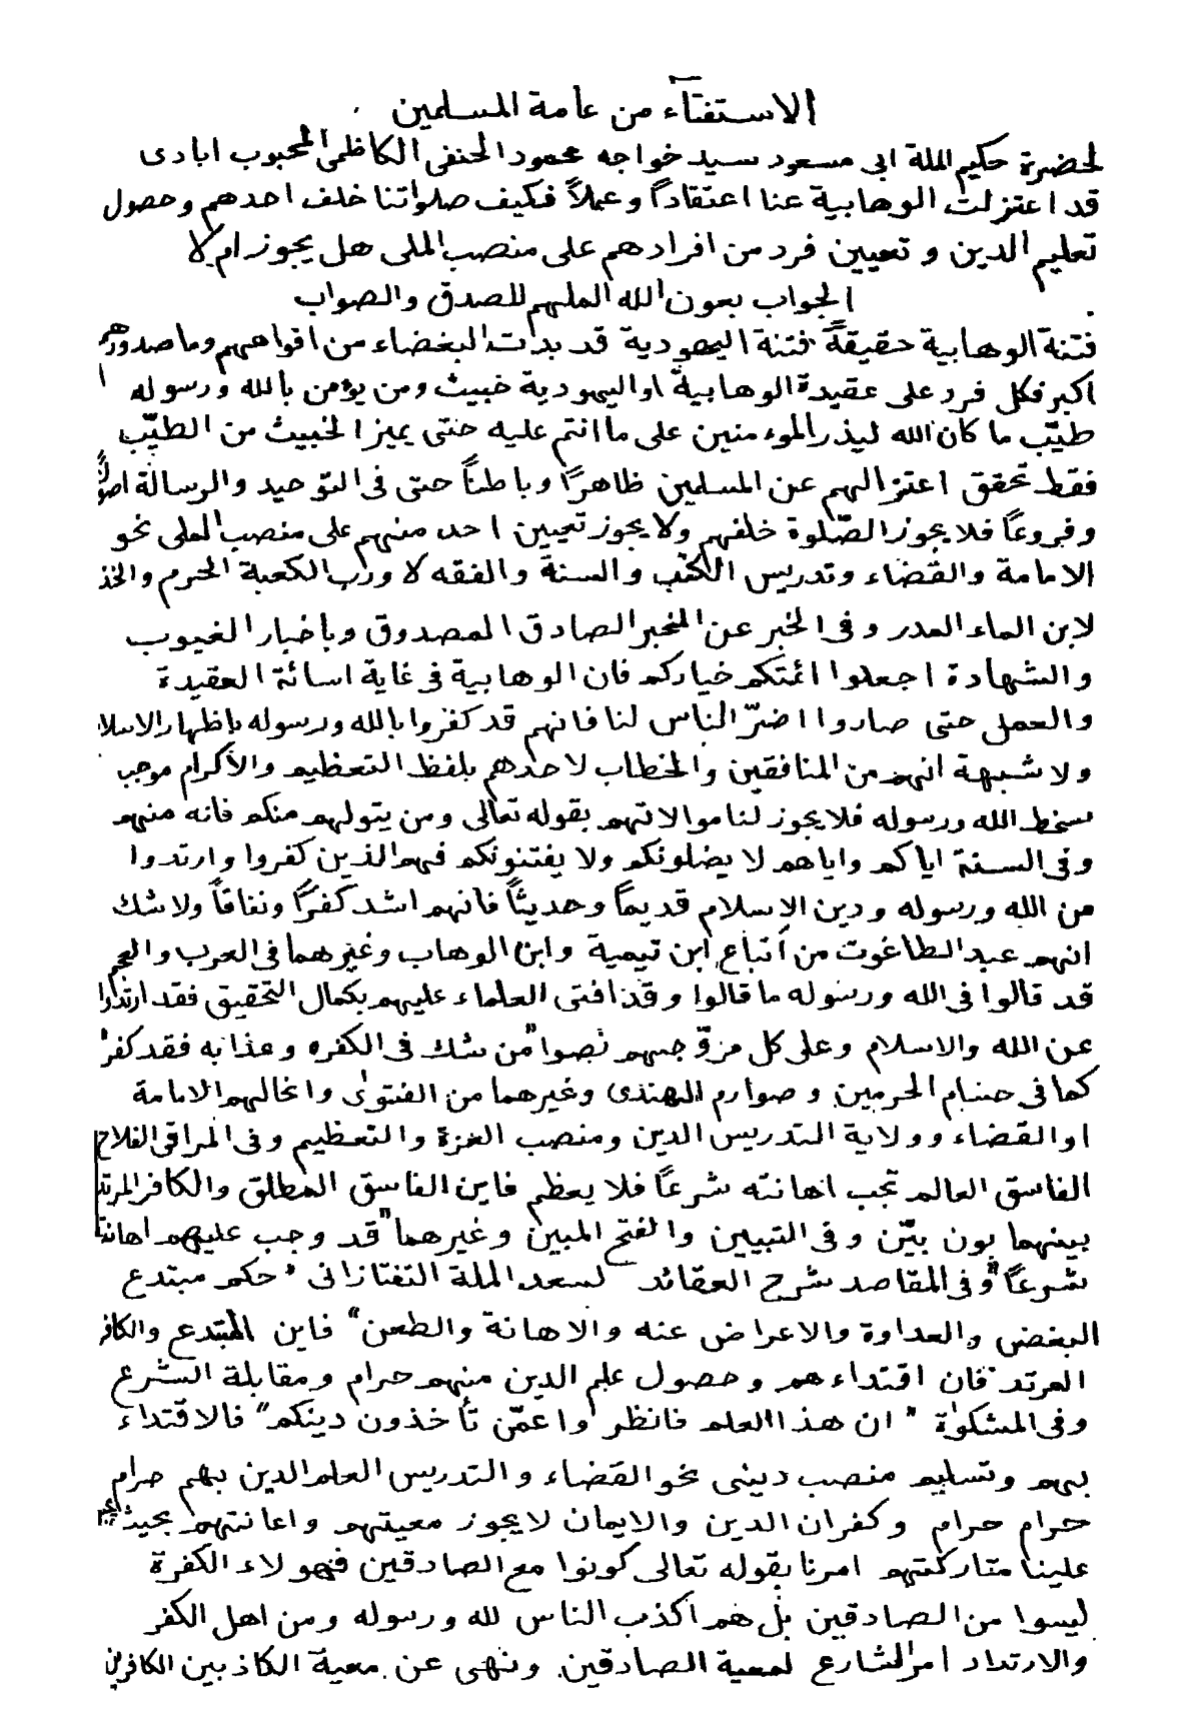 الاستفتاء من عامة المسلمين
لحضرة حكيم الملة ابى مسعود سيد خواجه محمود الحنفى الكاظمى المحبوب ابادى
قد اعتزلت الوهابية عنا اعتقاداً وعملاً فكيف صلواتنا خلف احدهم وحصول
تعليم الدين و تعيين فرد من افرادهم على منصب الملى هل يجوز ام لا
الجواب بعون الله الملهم للصدق والصواب
فتنة الوهابية حقيقةً فتنة اليهودية قد بدت البغضاء من افواههم وما صدورهم
اكبر فكل فرد على عقيدة الوهابية او اليهودية خبيث ومن يؤمن بالله ورسوله
طيّب ما كان الله ليذر الموء منين على ما انتم عليه حتى يميز الخبيث من الطيّب
فقط تحقق اعتزالهم عن المسلمين ظاهرًا وباطناً حتى فى التوحيد والرسالة اصولاً
وفروعاً فلا يجوز الصّلوة خلفهم ولا يجوز تعيين احد منهم على منصب الملى نحو
الامامة والقضاء وتدريس الكتب والسنة والفقه لا ورب الكعبة الحرم والخذ
لابن الماء المدر وفى الخبر عن المخبر الصادق المصدوق وباخبار الغيوب
والشهادة اجعلوا ائمتكم خياركم فان الوهابية فى غاية اسائة العقيدة
والعمل حتى صاروا اضرّ الناس لنا فانهم قد كفروا بالله ورسوله باظهار الاسلام
ولا شبهة انهم من المنافقين والخطاب لاحدهم بلفظ التعظيم والأكرام موجب
سخط الله ورسوله فلا يجوز لنا موالاتهم بقوله تعالى ومن يتولهم منكم فانه منهم
وفى السنة اياكم واياهم لا يضلونكم ولا يفتنونكم فهم الذين كفروا وارتدوا
من الله ورسوله ودين الاسلام قديماً وحديثاً فانهم اشد كفرًا ونفاقاً ولا شك
انهم عبد الطاغوت من أتباع ابن تيمية وابن الوهاب وغيرهما فى العرب والعجم
قد قالوا فى الله ورسوله ما قالوا وقد افتى العلماء عليهم بكمال التحقيق فقد ارتدوا
عن الله والاسلام وعلى كل مروّجهم نصوا "من شك فى الكفره وعذابه فقد كفر"
كما فى حسام الحرمين و صوارم الهندى وغيرهما من الفتوىٰ وانخالهم الامامة
او القضاء وولاية التدريس الدين ومنصب العزة والتعظيم وفى المراقى الفلاح
الفاسق العالم تجب اهانته شرعاً فلا يعظم فاين الفاسق المطلق والكافر المرتد
بينهما بون بيّن وفى التبيين والفتح المبين وغيرهما "قد وجب عليهم اهانة
شرعاً" وفى المقاصد شرح العقائد لسعد الملة التفتازانى "حكم مبتدع
البغض والعداوة والاعراض عنه والاهانة والطعن" فاين المبتدع والكافر
المرتد فان اقتداءهم وحصول علم الدين منهم حرام ومقابلة الشرع
وفى المشكوٰة "ان هذا العلم فانظروا عمّن تأخذون دينكم" فالاقتداء
بهم وتسليم منصب دينى نحو القضاء والتدريس العلم الدين بهم حرام
حرام حرام وكفران الدين والايمان لا يجوز معيتهم واعانتهم بحيث
علينا متاركتهم امرنا بقوله تعالى كونوا مع الصادقين فهولاء الكفرة
ليسوا من الصادقين بل هم اكذب الناس لله ورسوله ومن اهل الكفر
والارتداد امر الشارع لمعية الصادقين ونهى عن معية الكاذبين الكافرين